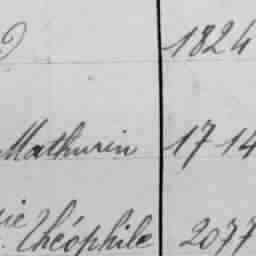 1824
Mathurin 1714
Théophile 2077